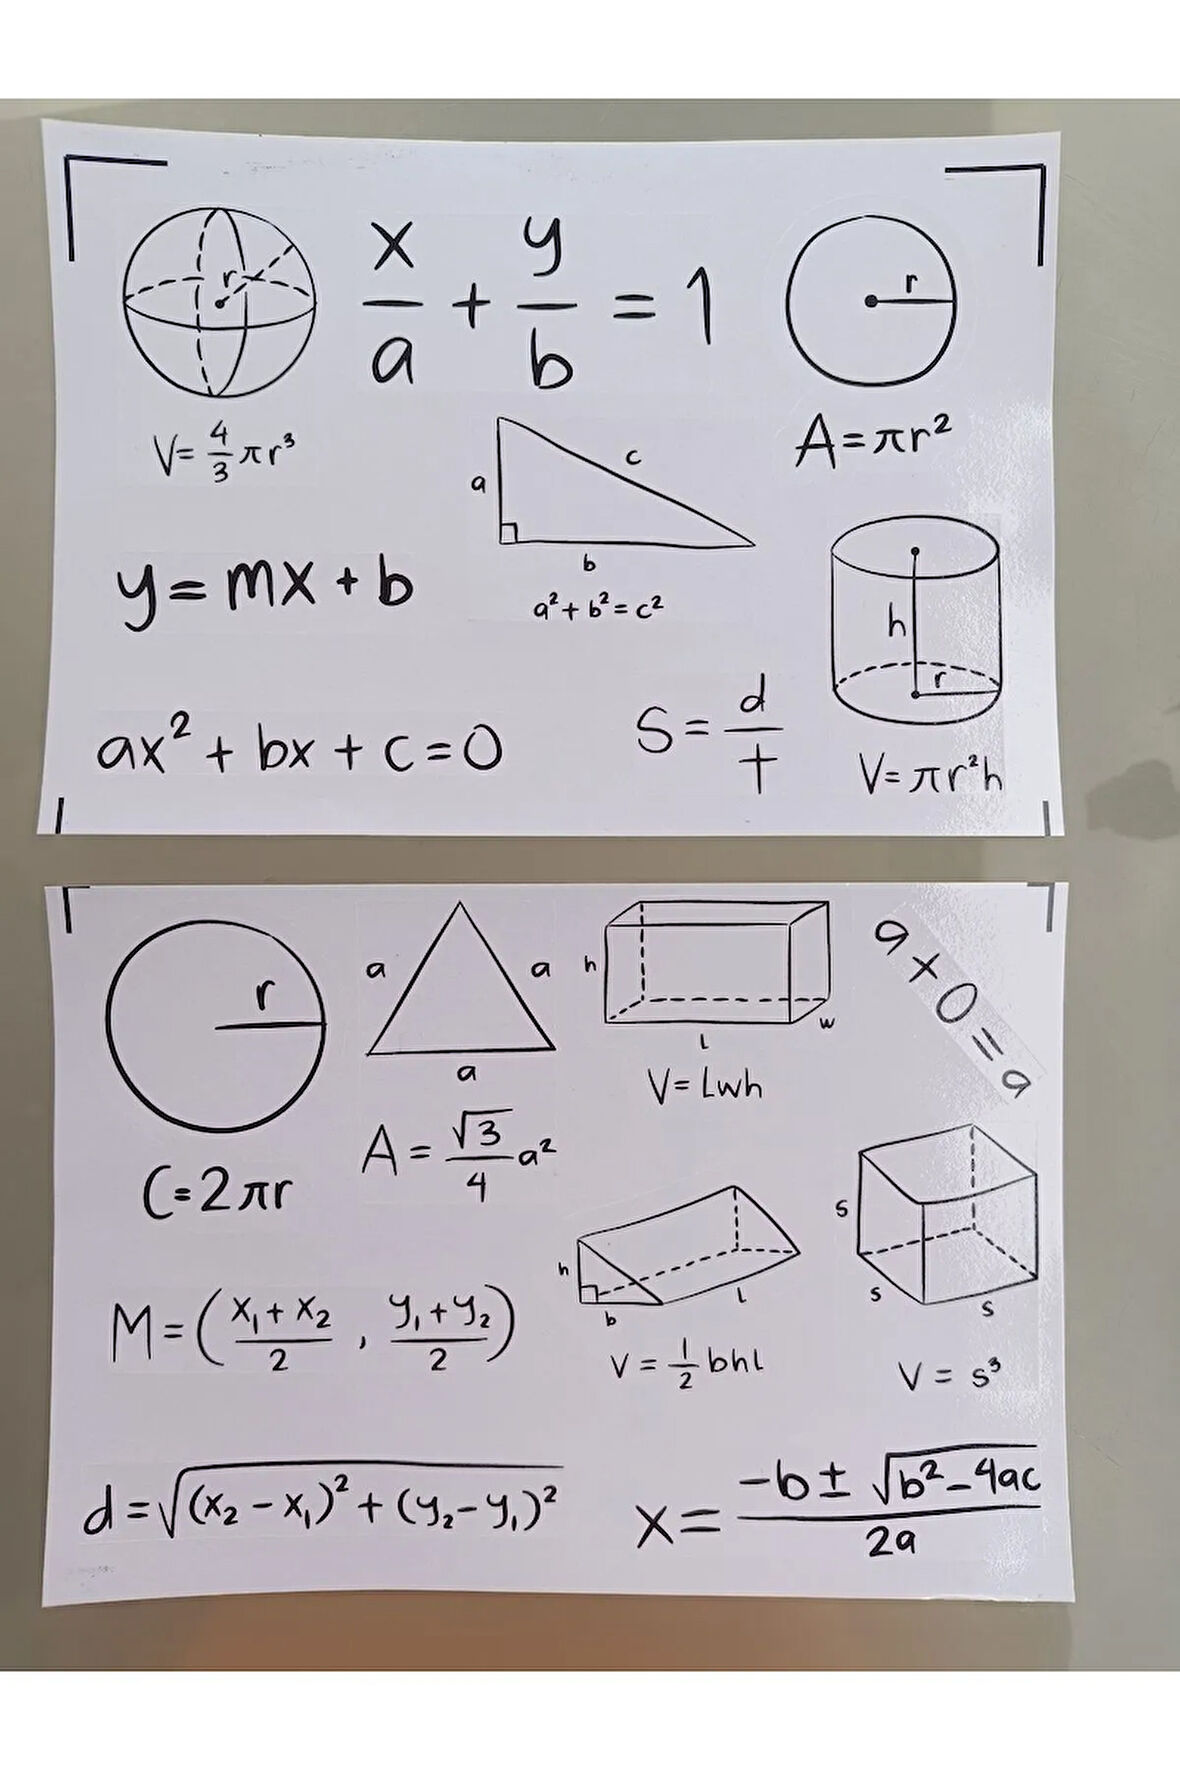 r
V = 4/3 πr³
x/a + y/b = 1
r
A = πr²
a
c
b
a² + b² = c²
y = mx + b
h
r
V = πr²h
ax² + bx + c = 0
S = d/t
r
C = 2πr
a
a
a
A = √3/4 a²
h
l
w
V = Lwh
a × 0 = a
h
b
l
V = 1/2 bhl
s
s
s
V = s³
M = (x₁ + x₂/2 , y₁ + y₂/2)
d = √(x₂ - x₁)² + (y₂ - y₁)²
x = -b ± √b² - 4ac / 2a